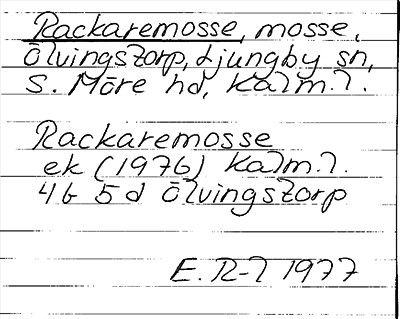 Rackaremosse, mosse,
Ölvingstorp, Ljungby sn,
S. Möre hd, Kalm. l.
Rackaremosse
ek (1976) Kalm. l.
4G 5d Ölvingstorp
E. R-l 1977